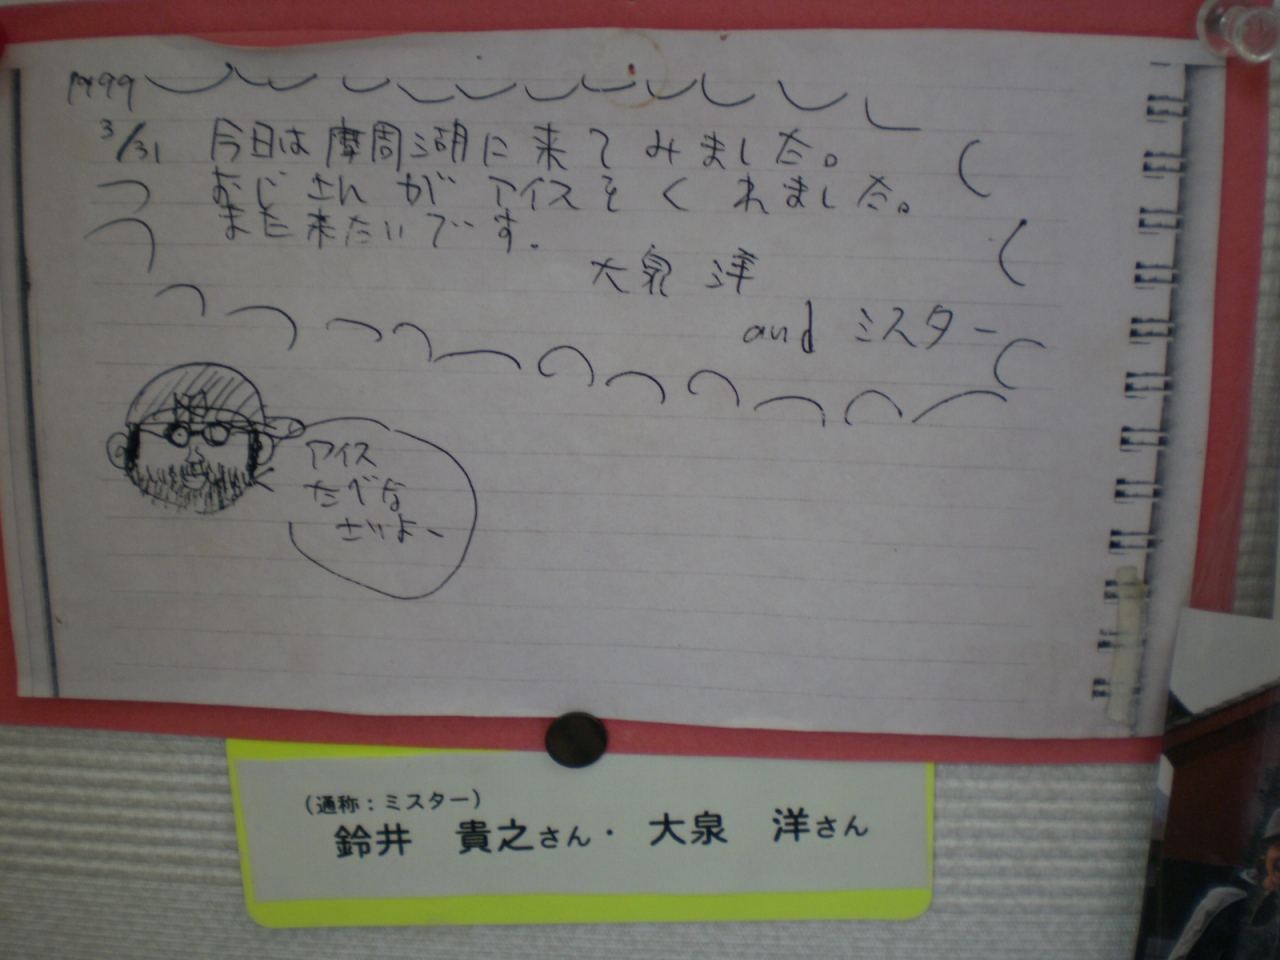 1999
3/31 今日は摩周湖に来てみました。
おじさんがアイスをくれました。
また来たいです。
大泉 洋
and ミスター
アイス
たべな
さいよー
(通称:ミスター)
鈴井 貴之さん・大泉 洋さん